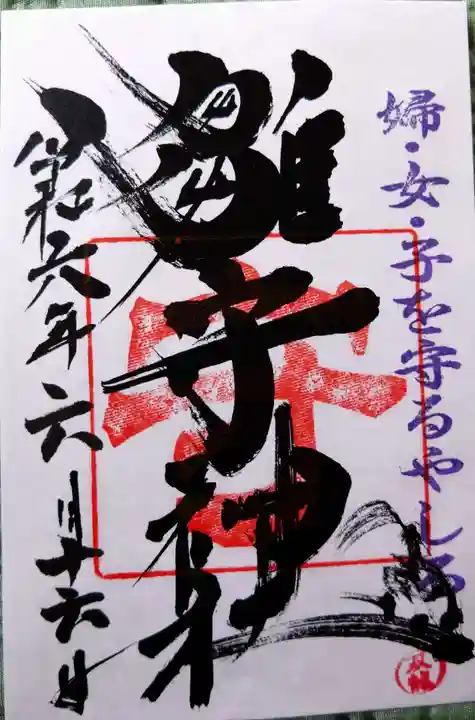 婦・女・子を守るやしろ
雛守神社
令和六年六月十六日